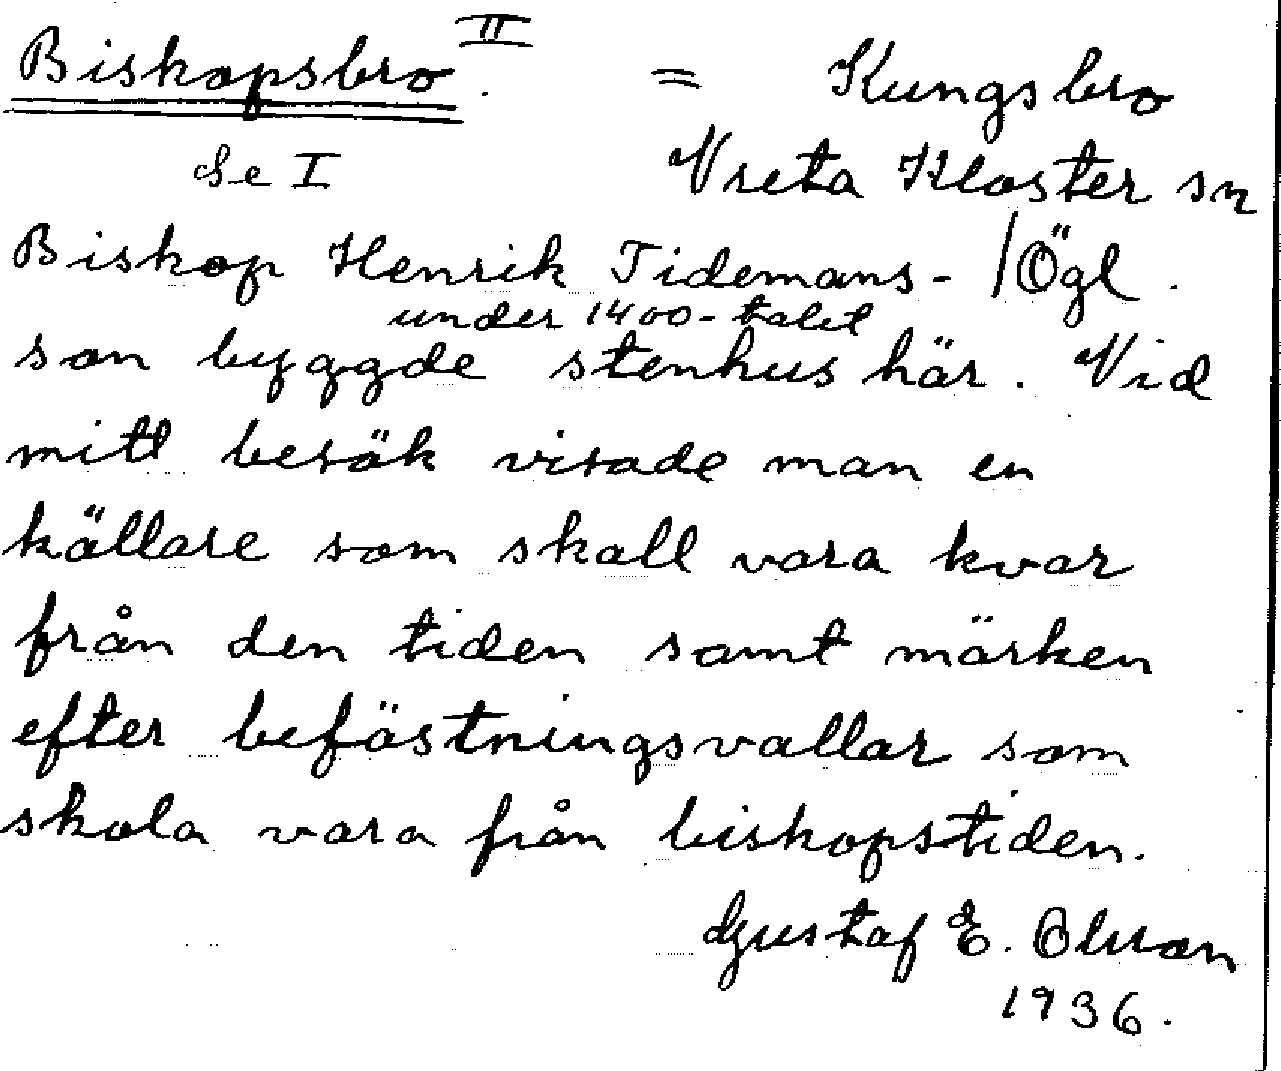 Biskopsbro II. = Kungsbro
Se I Vreta Kloster sn
Biskop Henrik Tidemans- /Ögl.
under 1400-talet
son byggde stenhus här. Vid
mitt besök visade man en
källare som skall vara kvar
från den tiden samt märken
efter befästningsvallar som
skola vara från biskopstiden.
Gustaf E. Olsson
1936.